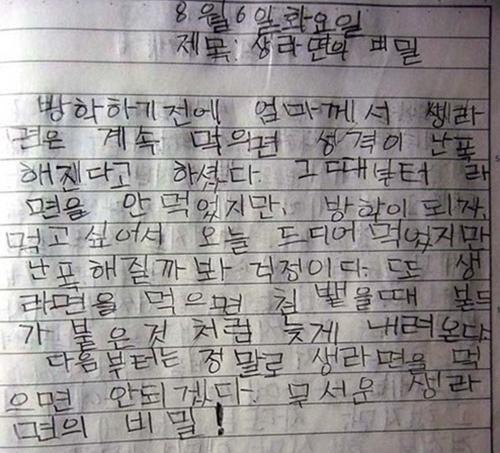 8월6일화요일
제목: 생라면의 비밀
방학하기전에 엄마께서 생라
면은 계속 먹의면 성격이 난폭
해진다고 하셨다. 그때부터 라
면을 안 먹었지만, 방학이 되자,
먹고 싶어서 오늘 드디어 먹었지만
난폭해질까봐 걱정이다. 또 생
라면을 먹으면 침 뱉을때 본드
가 붙은것 처럼 늦게 내려온다
다음부터는 정말로 생라면을 먹
으면 안되겠다. 무서운 생라
면의 비밀!